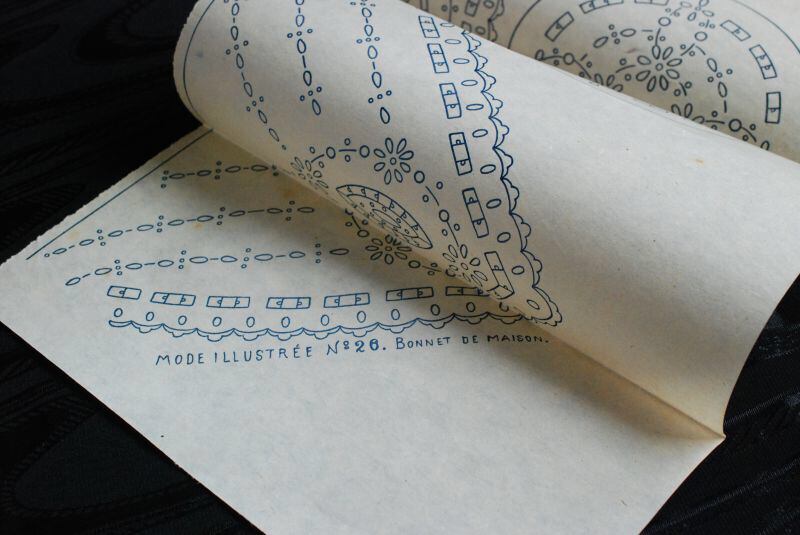 MODE ILLUSTRÉE Nº 26. BONNET DE MAISON.